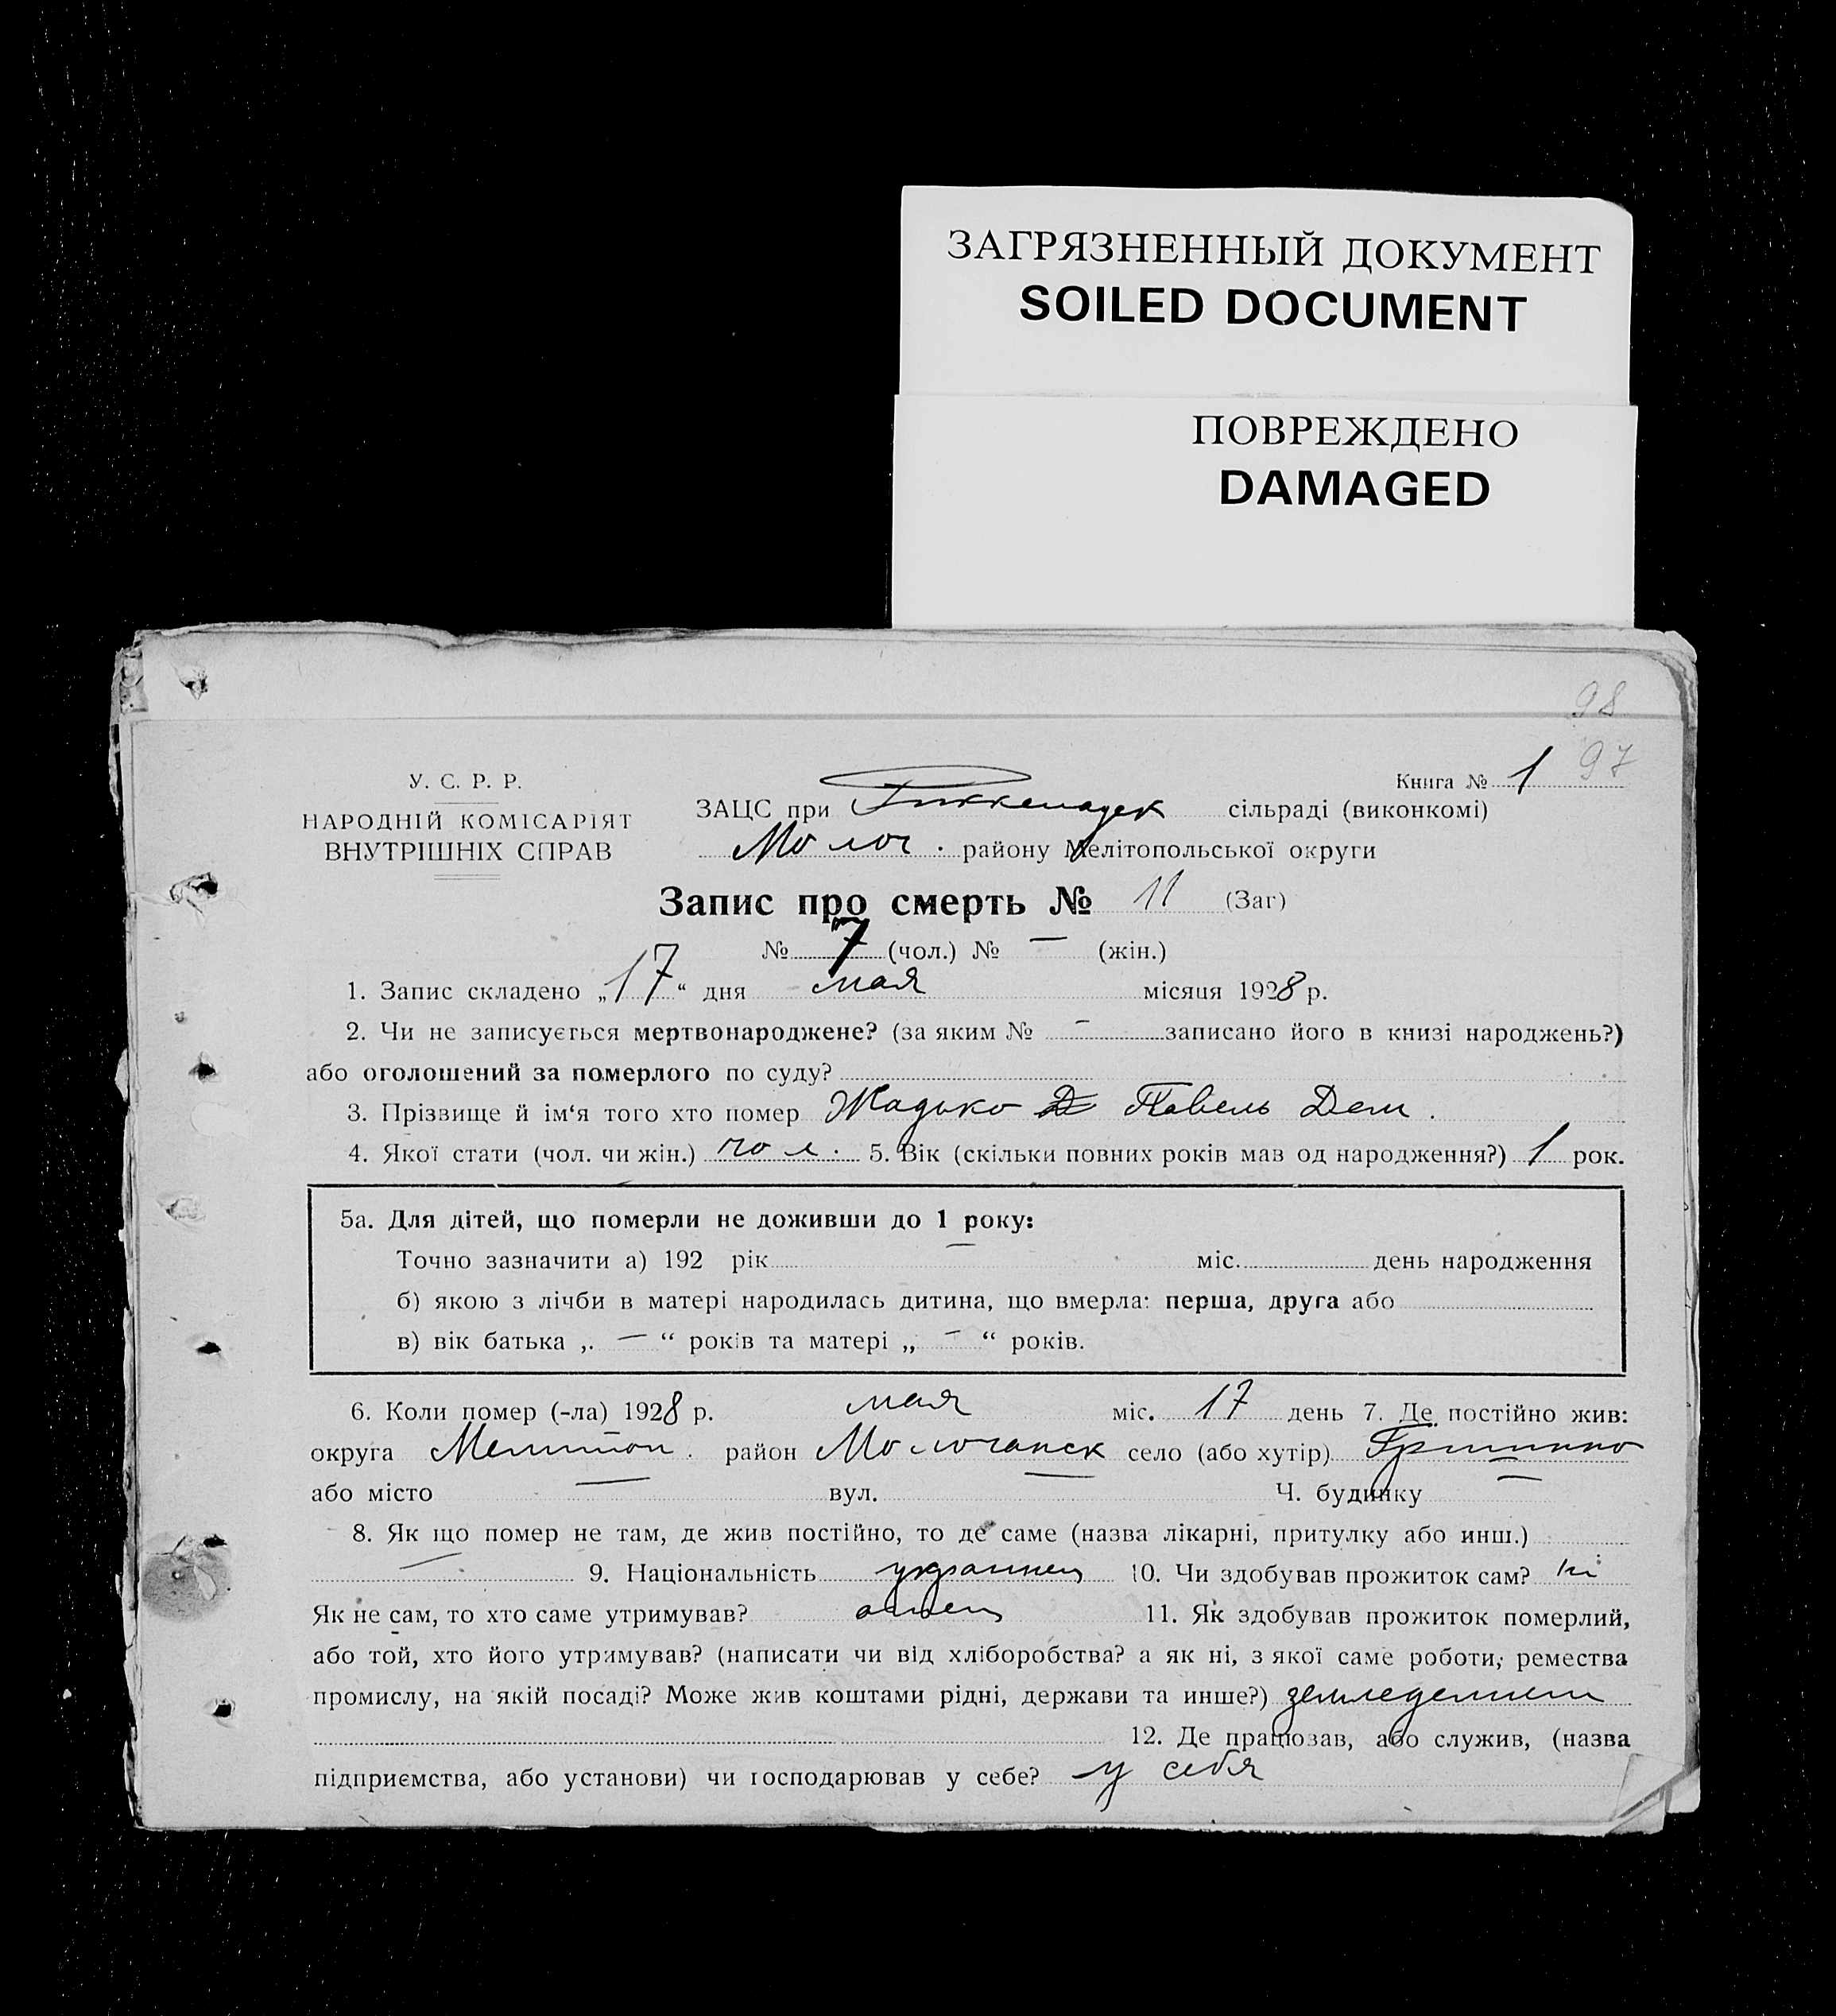 ЗАГРЯЗНЕННЫЙ ДОКУМЕНТ
SOILED DOCUMENT
ПОВРЕЖДЕНО
DAMAGED
98
97
У. С. Р. Р.
НАРОДНІЙ КОМІСАРІЯТ
ВНУТРІШНІХ СПРАВ
Книга № 1
ЗАЦС при сільраді (виконкомі)
Молоч. району Мелітопольської округи
Запис про смерть № 11 (Заг)
№ 7 (чол.) № — (жін.)
1. Запис складено „17“ дня мая місяця 1928 р.
2. Чи не записується мертвонароджене? (за яким № - записано його в книзі народжень?)
або оголошений за померлого по суду?
3. Прізвище й ім‘я того хто помер Жадько Павель Дем.
4. Якої стати (чол. чи жін.) чол. 5. Вік (скільки повних років мав од народження?) 1 рок.
5а. Для дітей, що померли не доживши до 1 року:
Точно зазначити а) 192 рік — міс. день народження
б) якою з лічби в матері народилась дитина, що вмерла: перша, друга або
в) вік батька „ — “ років та матері „ — “ років.
6. Коли помер (-ла) 1928 р. мая міс. 17 день 7. Де постійно жив:
округа Мелитоп. район Молочанск село (або хутір)
або місто — вул. — Ч. будинку —
8. Як що помер не там, де жив постійно, то де саме (назва лікарні, притулку або инш.)
— 9. Національність украинец 10. Чи здобував прожиток сам? ні
Як не сам, то хто саме утримував? отец 11. Як здобував прожиток померлий,
або той, хто його утримував? (написати чи від хліборобства? а як ні, з якої саме роботи, ремества
промислу, на якій посаді? Може жив коштами рідні, держави та инше?) земледелием
12. Де працював, або служив, (назва
підприємства, або установи) чи господарював у себе? у себя